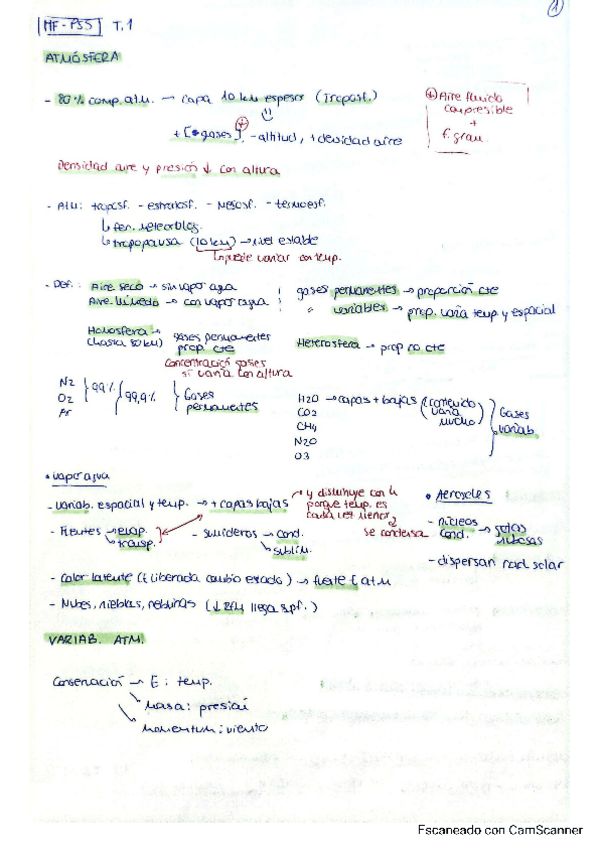 1
MF-PSS T.1
ATMÓSFERA
- 80% comp. atm. → capa 10 km espesor (Troposf.)
+ [gases], -altitud, + densidad aire
⊕ Aire fluido
compresible
+
f. grav.
Densidad aire y presión ↓ con altura
- Atm: troposf. - estratosf. - mesosf. - termosf.
↳ fen. meteorológ.
↳ tropopausa (10 km) → nivel estable
↳ puede variar con temp.
- Def.: Aire seco → sin vapor agua
Aire húmedo → con vapor agua
gases permanentes → proporción cte
" variables → prop. varía temp y espacial
Homosfera → gases permanentes
(hasta 80 km) prop. cte
Heterosfera → prop no cte
Concentración gases
sí varía con altura
N2
O2
Ar
99% 99,9% Gases
permanentes
H2O → capas + bajas (contenido
varía
mucho)
CO2
CH4
N2O
O3
Gases
variab.
• vapor agua
- variab. espacial y temp. → + capas bajas
→ y disminuye con h
porque temp. es
cada vez menor
se condensa
- Fuentes → evap.
↘ transp.
- Sumideros → cond.
↘ sublim.
• Aerosoles
- núcleos
cond. → gotas
nubosas
- dispersan rad. solar
- Calor latente (E liberada cambio estado) → fuente E atm
- Nubes, nieblas, neblinas (↓ llega spf.)
VARIAB. ATM.
Conservación → E: temp.
↘ Masa: presión
↘ Momentum: viento
Escaneado con CamScanner